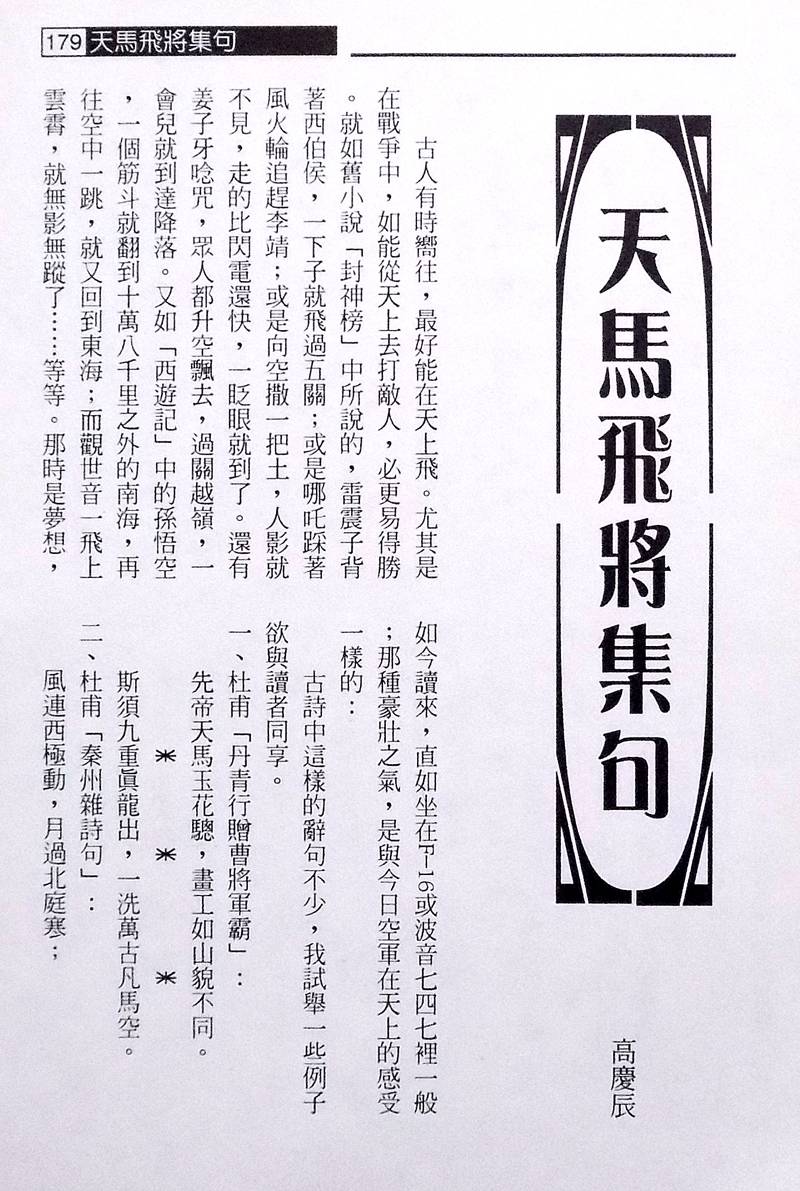 179 天馬飛將集句
天馬飛將集句
高慶辰
古人有時嚮往，最好能在天上飛。尤其是
在戰爭中，如能從天上去打敵人，必更易得勝
。就如舊小說「封神榜」中所說的，雷震子背
著西伯侯，一下子就飛過五關；或是哪吒踩著
風火輪追趕李靖；或是向空撒一把土，人影就
不見，走的比閃電還快，一眨眼就到了。還有
姜子牙唸咒，眾人都升空飄去，過關越嶺，一
會兒就到達降落。又如「西遊記」中的孫悟空
，一個筋斗就翻到十萬八千里之外的南海，再
往空中一跳，就又回到東海；而觀世音一飛上
雲霄，就無影無蹤了……等等。那時是夢想，
如今讀來，直如坐在F-16或波音七四七裡一般
；那種豪壯之氣，是與今日空軍在天上的感受
一樣的：
古詩中這樣的辭句不少，我試舉一些例子
欲與讀者同享。
一、杜甫「丹青行贈曹將軍霸」：
先帝天馬玉花驄，畫工如山貌不同。
＊ ＊ ＊
斯須九重真龍出，一洗萬古凡馬空。
二、杜甫「秦州雜詩句」：
風連西極動，月過北庭寒；